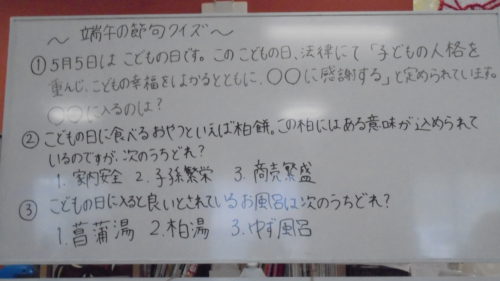 ～端午の節句クイズ～
①5月5日はこどもの日です。このこどもの日、法律にて「子どもの人格を
重んじ、こどもの幸福をはかるとともに、○○に感謝する」と定められています。
○○に入るのは？
②こどもの日に食べるおやつといえば柏餅。この柏にはある意味が込められて
いるのですが、次のうちどれ？
1.家内安全 2.子孫繁栄 3.商売繁盛
③こどもの日に入ると良いとされているお風呂は次のうちどれ？
1.菖蒲湯 2.柏湯 3.ゆず風呂